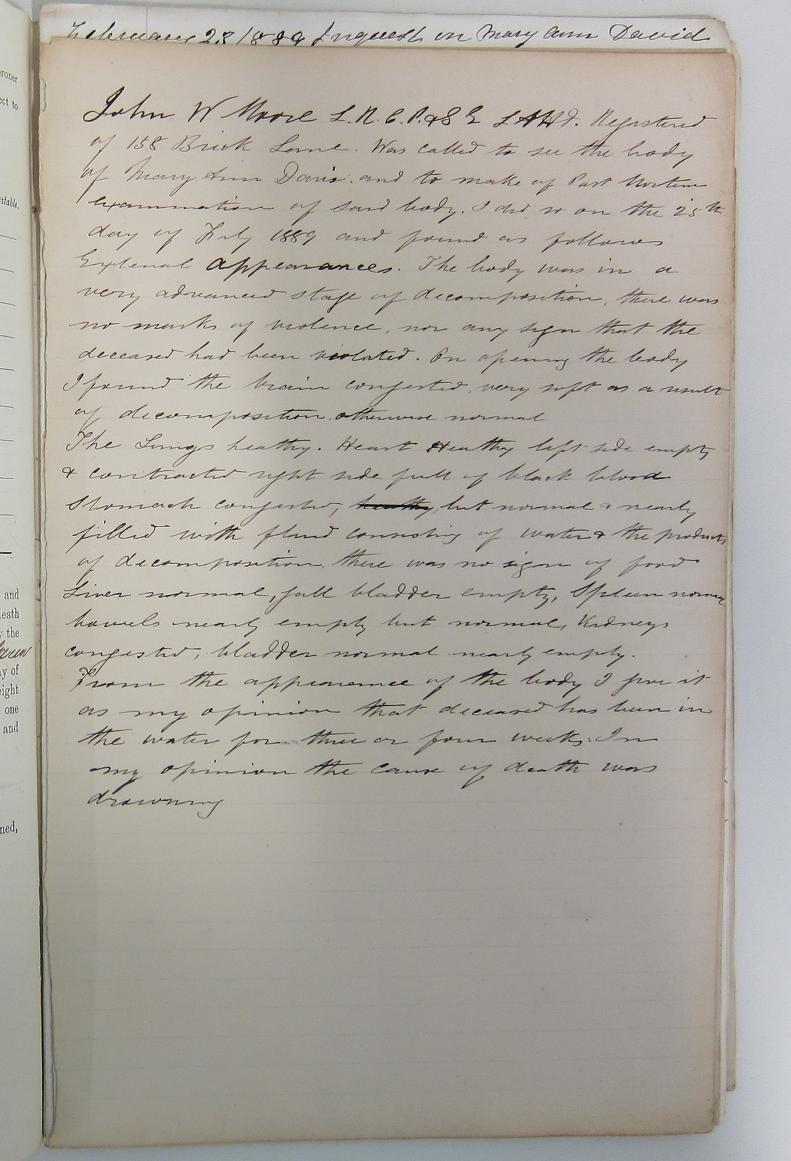 February 28 1889 Inquest on Mary Ann David
John W Moore L.R.C.P.&S E L.A.H.D. Registered
of 158 Brick Lane. Was called to see the body
of Mary Ann Davis. and to make of Post Mortem
Examination of said body. I did so on the 25th
day of Feby 1889 and found as follows
External appearances. The body was in a
very advanced stage of decomposition, there was
no marks of violence, nor any sign that the
deceased had been violated. On opening the body
I found the brain congested, very soft as a result
of decomposition otherwise normal
The Lungs heathy. Heart Heathy left side empty
& contracted right side full of black blood
Stomach congested, heathy but normal & nearly
filled with fluid consisting of water & the products
of decomposition, there was no sign of food
Liver normal, gall bladder empty, Spleen normal
bowels nearly empty but normal, Kidneys
congested, bladder normal nearly empty.
From the appearance of the body I give it
as my opinion that deceased has been in
the water for three or four weeks. In
my opinion the cause of death was
drowning
oroner
ect to
and
death
y the
ay of
eight
one
and
ned,